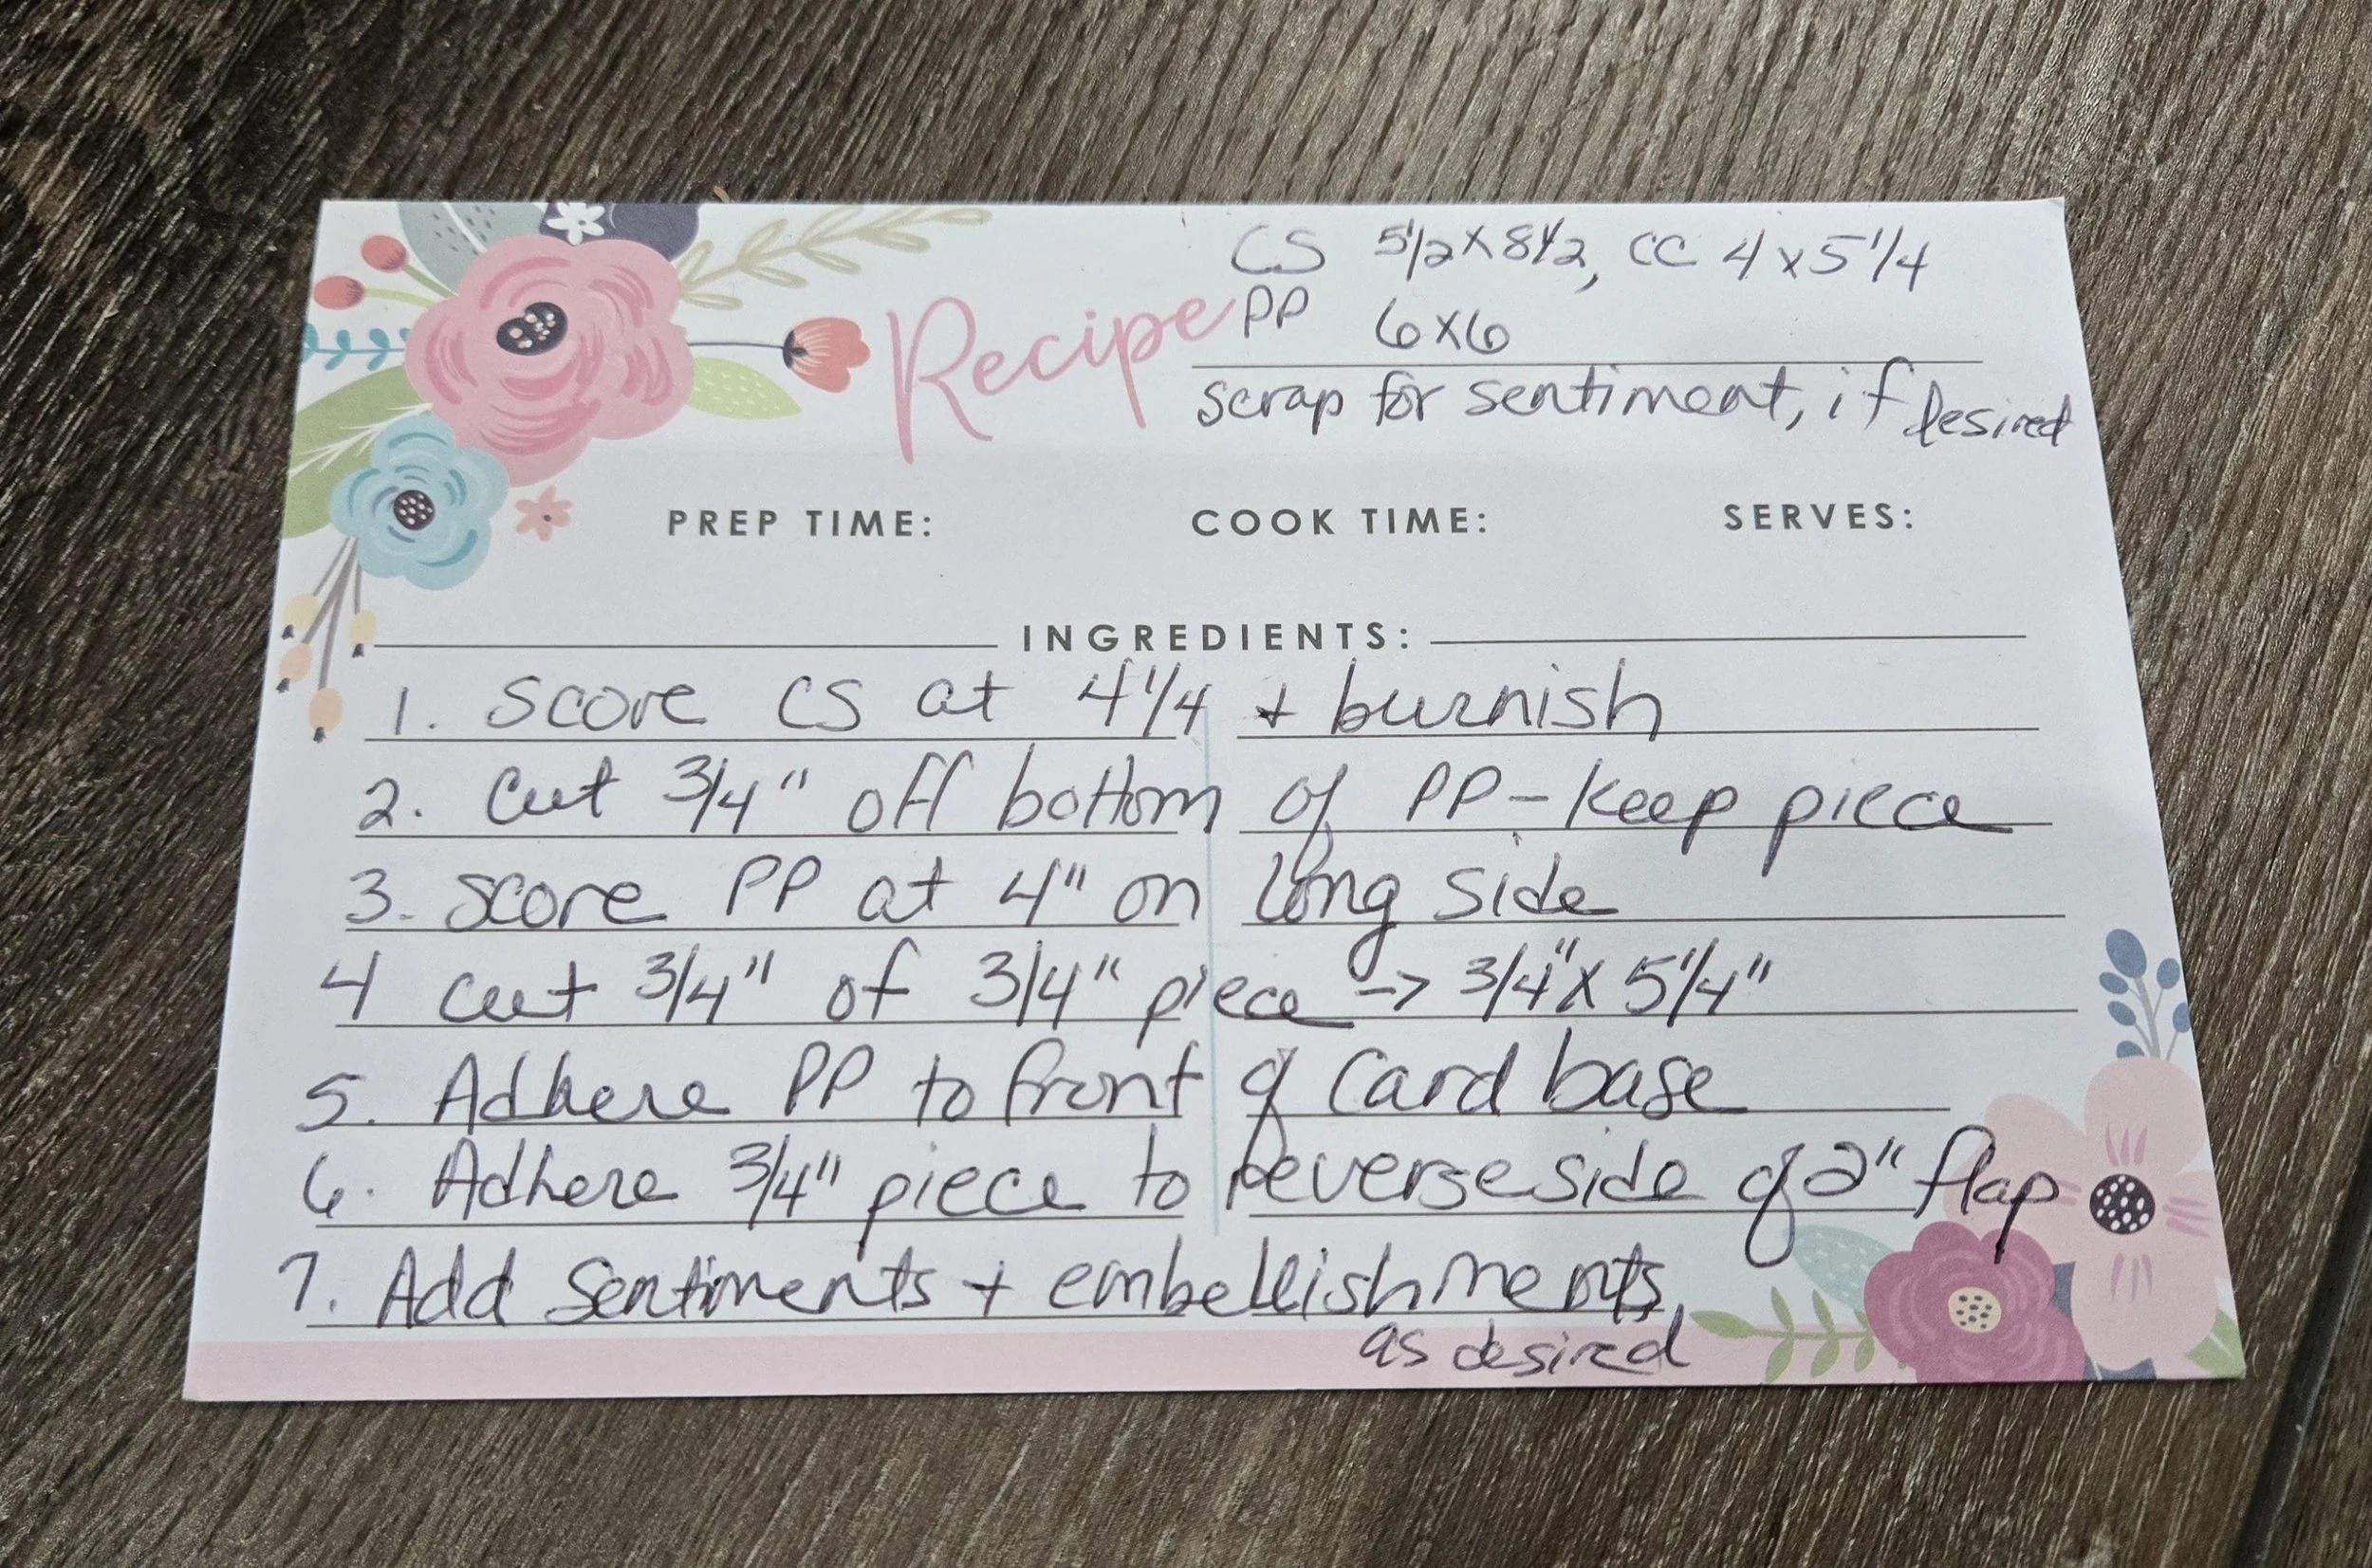 CS 5 1/2 x 8 1/2, CC 4 x 5 1/4
Recipe PP 6x6
scrap for sentiment, if desired
PREP TIME: COOK TIME: SERVES:
INGREDIENTS:
1. Score CS at 4 1/4 + burnish
2. Cut 3/4" off bottom of PP - keep piece
3. Score PP at 4" on long side
4 Cut 3/4" of 3/4" piece -> 3/4" x 5 1/4"
5. Adhere PP to front of card base
6. Adhere 3/4" piece to reverse side of 2" flap
7. Add Sentiments + embellishments,
as desired